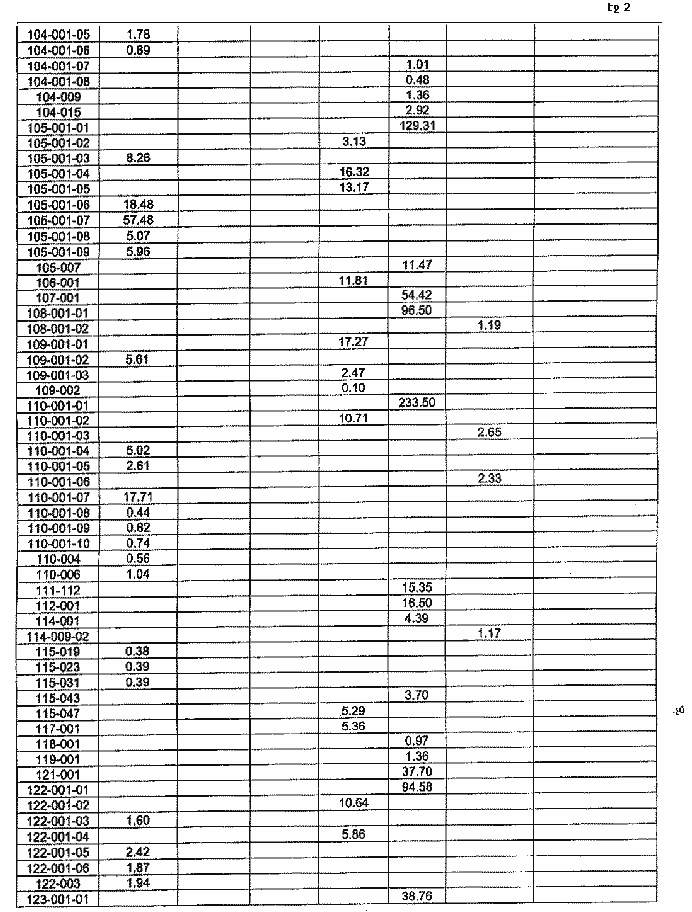 tg 2
104-001-05 1.78
104-001-06 0.89
104-001-07 1.01
104-001-08 0.48
104-009 1.36
104-015 2.92
105-001-01 129.31
105-001-02 3.13
105-001-03 8.26
105-001-04 16.32
105-001-05 13.17
105-001-06 18.48
106-001-07 57.48
105-001-08 5.07
105-001-09 5.96
105-007 11.47
106-001 11.81
107-001 54.42
108-001-01 96.50
108-001-02 1.19
109-001-01 17.27
109-001-02 5.61
109-001-03 2.47
109-002 0.10
110-001-01 233.50
110-001-02 10.71
110-001-03 2.65
110-001-04 5.02
110-001-05 2.61
110-001-06 2.33
110-001-07 17.71
110-001-08 0.44
110-001-09 0.62
110-001-10 0.74
110-004 0.56
110-006 1.04
111-112 15.35
112-001 16.50
114-001 4.39
114-009-02 1.17
115-019 0.38
115-023 0.39
115-031 0.39
115-043 3.70
115-047 5.29
117-001 5.36
118-001 0.97
119-001 1.36
121-001 37.70
122-001-01 94.58
122-001-02 10.64
122-001-03 1.60
122-001-04 5.86
122-001-05 2.42
122-001-06 1.87
122-003 1.94
123-001-01 38.76